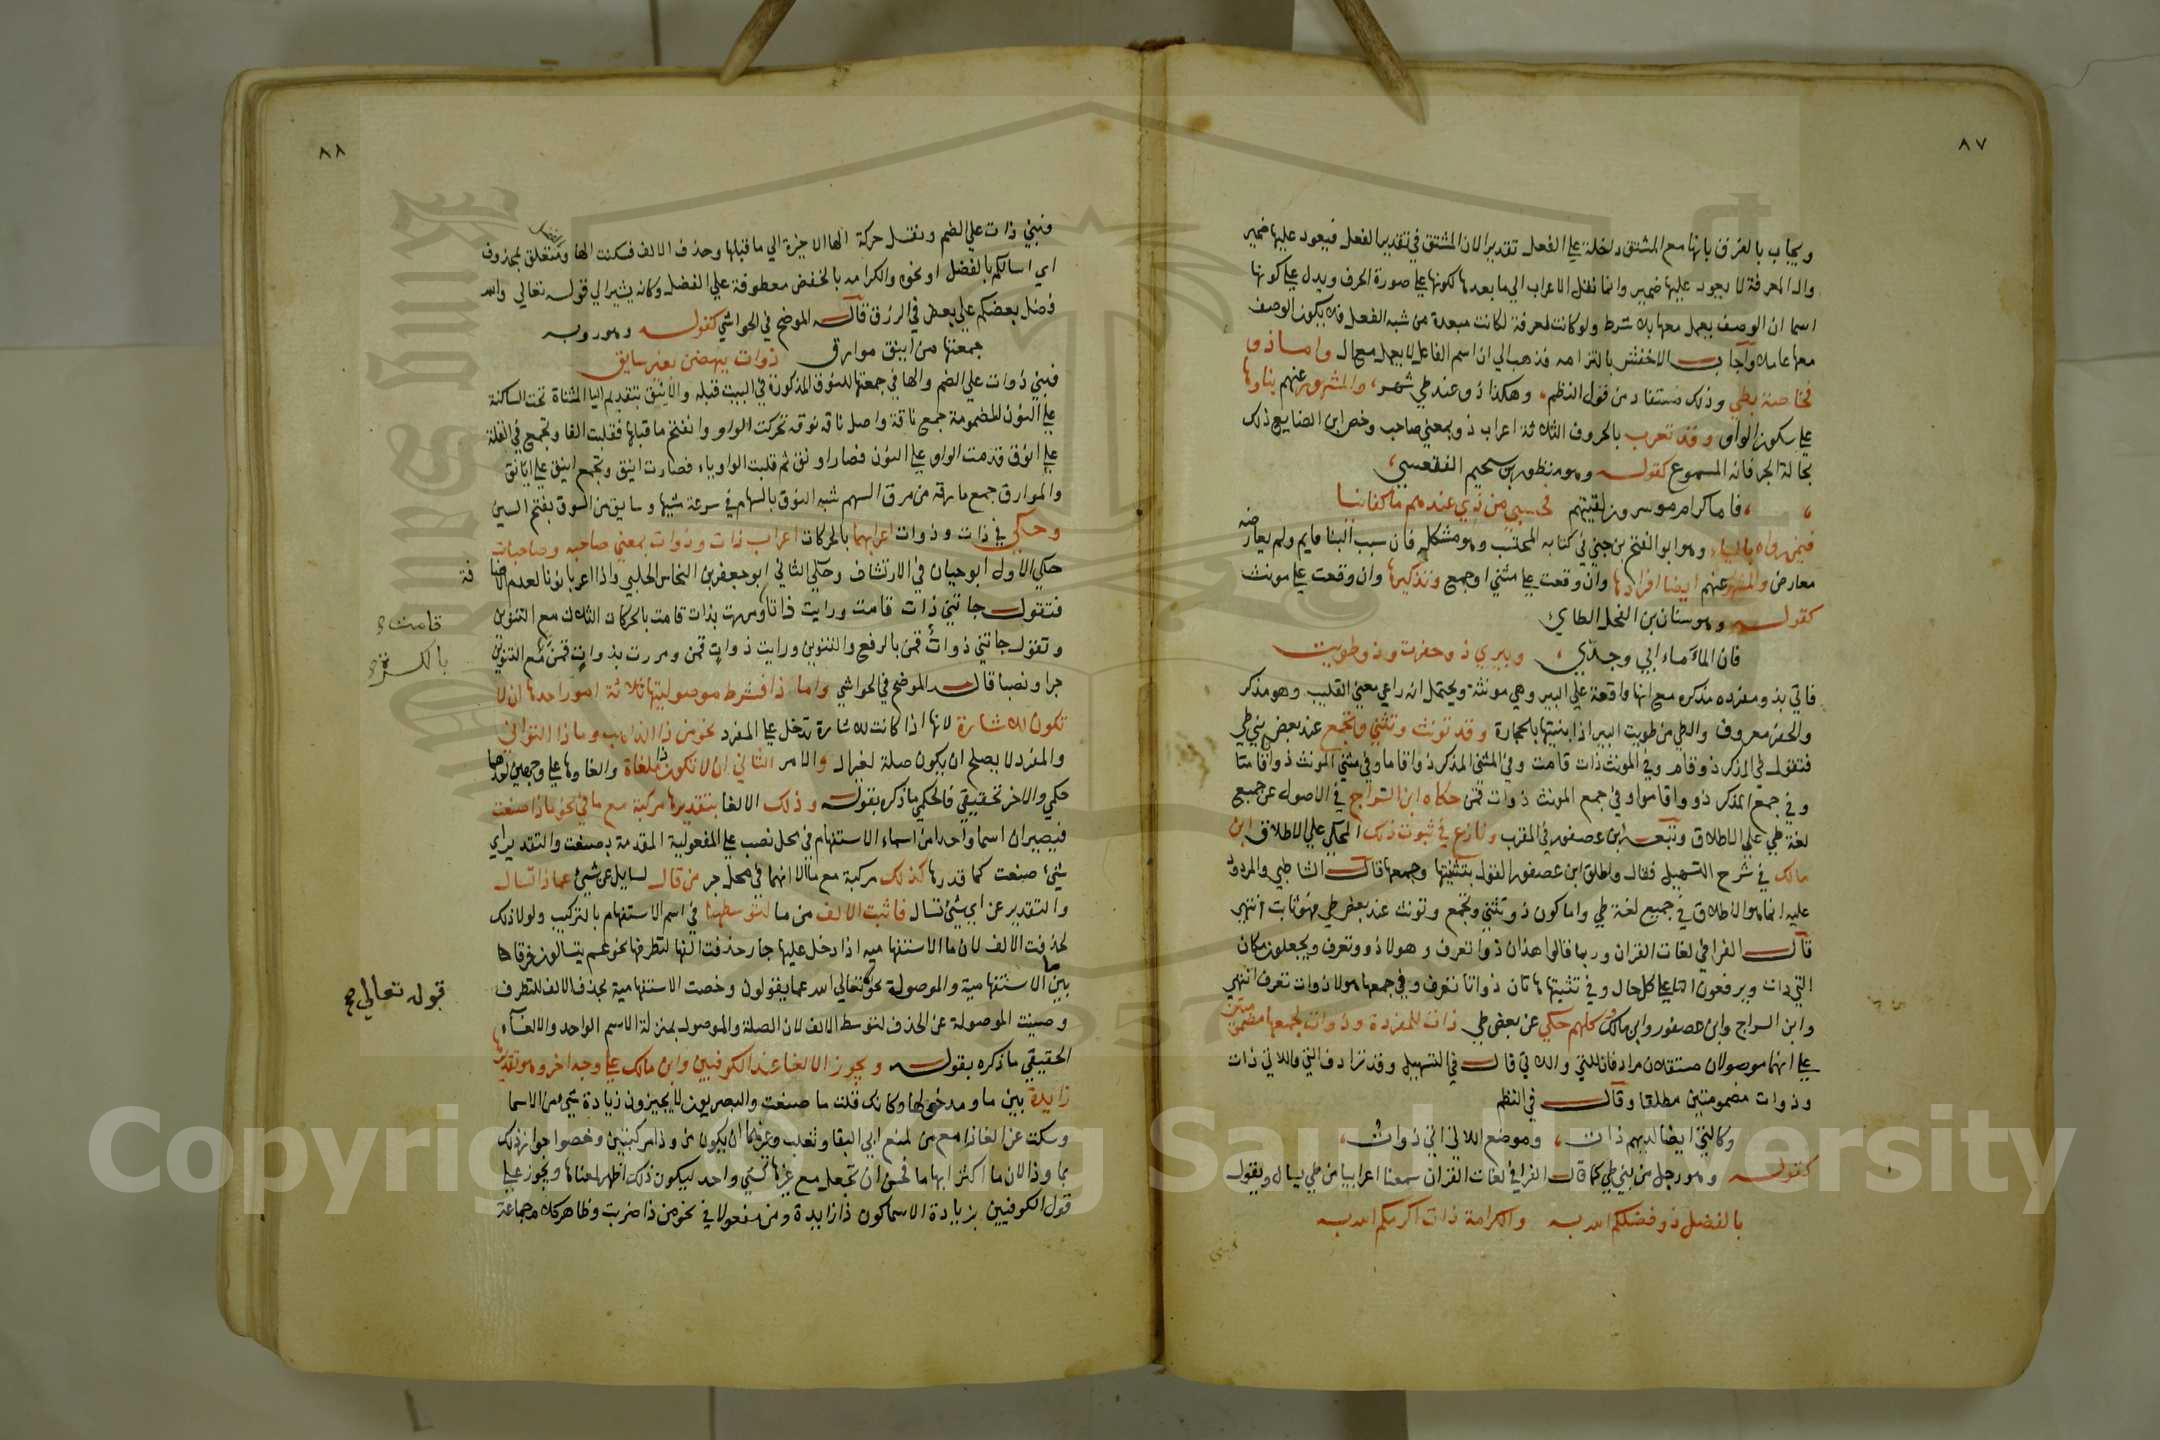 ٨٧
ويجاب بالفرق بانها مع المشتق داخلة على الفعل تقديرا لان المشتق في تقدير الفعل فيعود عليها ضمير
وال المعرفة لا يعود عليها ضمير وانما نقل الاعراب الي ما بعدها لكونها على صورة الحرف ويدل على كونها
اسما ان الوصف يعمل معها بلا شرط ولو كانت لمعرفة لكانت مبعدة من شبه الفعل فلا يكون الوصف
معها عاملا واجاب الاخفش بالتزامه فذهب الي ان اسم الفاعل لا يعمل مع ال واما ذو
فخاصة بطي وذلك مستفاد من قول النظم وهكذا ذو عند طي شهر والمشهور عنهم بناوها
على سكون الواو وقد تعرب بالحروف الثلاثة اعراب ذو بمعني صاحب وخص ابن الضايع ذلك
بحالة الجر فانه المسموع كقوله وهو منظور بن سحيم الفقعسي
فاما كرام موسرون لقيتهم فحسبي من ذي عندهم ما كفانيا
فيمن رواه بالياء وهو ابو الفتح بن جني في كتابه المحتسب وهو مشكل فان سبب البنا قايم ولم يعارضه
معارض والمشهور عنهم ايضا افرادها وان وقعت على مثني او جمع وتذكيرها وان وقعت على مونث
كقوله وهو سنان بن الفحل الطاي
فان الماء ماء ابي وجدي وبيري ذو حفرت وذو طويت
فاتي بذو مفرده مذكره مع انها واقعة علي البير وهي مونثة ويحتمل انه راعي معني القليب وهو مذكر
والحفر معروف والطي من طويت البير اذا بنيتها بالحجارة وقد تونث وتثني وتجمع عند بعض بني طي
فتقول في المذكر ذو قام وفي المونث ذات قامت وفي المثني المذكر ذوا قاما وفي مثني المونث ذواتا قامتا
وفي جمع المذكر ذوو قاموا وفي جمع المونث ذوات قمن حكاه ابن السراج في الاصول عن جميع
لغة طي علي الاطلاق وتبعه ابن عصفور في المقرب ونازع في ثبوت ذلك المحكي علي الاطلاق ابن
مالك في شرح التسهيل فقال واطلق ابن عصفور القول بتثنيتها وجمعها قال الشاطبي والمردود
عليه انما هو الاطلاق في جميع لغة طي واما كون ذو تثني وتجمع وتونث عند بعض طي فهو ثابت انتهي
قال الفرا في لغات القران وربما قالوا هذان ذوا تعرف وهولا ذوو تعرف ويجعلون مكان
التي ذات ويرفعون التا على كل حال وفي تثنيتها هاتان ذواتا تعرف وفي جمعها هولا ذوات تعرف انتهي
وابن السراج وابن عصفور وابن مالك كلهم حكي عن بعض طي ذات للمفردة وذوات لجمعها مضمومتين
على انهما موصولان مستقلان مرادفان للتي واللاتي قال في التسهيل وقد ترادف التي واللاتي ذات
وذوات مضمومتين مطلقا وقال في النظم
وكالتي ايضا لديهم ذات وموضع اللاتي اتي ذوات
كقوله وهو رجل من بني طي كما قال الفرا في لغات القران سمعنا اعرابيا من طي يسال ويقول
بالفضل ذو فضلكم الله به والكرامة ذات اكرمكم الله به
٨٨
فبني ذات علي الضم ونقل حركة الها الاخيرة الي ما قبلها وحذف الالف فسكنت الها ومتعلق بمحذوف
بالفضل
اي اسالكم بالفضل او نحوه والكرامه بالخفض معطوفة علي الفضل وكانه يشير الي قوله تعالي والله
فضل بعضكم علي بعض في الرزق قاله الموضح في الحواشي كقوله وهو روبه
جمعتها من اينق موارق ذوات ينهضن بغير سايق
فبني ذوات علي الضم والها في جمعتها للنوق المذكورة في البيت قبله والاينق بتقديم اليا المثناة تحت الساكنة
على النون المضمومة جمع ناقة واصل ناقه نوقه تحركت الواو وانفتح ما قبلها فقلبت الفا وتجمع في القلة
على انوق قدمت الواو على النون فصار اونق ثم قلبت الواو ياء فصارت اينق وتجمع اينق على ايانق
والموارق جمع مارقه من مرق السهم شبه النوق بالسهام في سرعة مشيها وسايق من السوق بفتح السين
وحكي في ذات وذوات اعرابهما بالحركات اعراب ذات وذوات بمعني صاحبه وصاحبات
حكي الاول ابو حيان في الارتشاف وحكي الثاني ابو جعفر بن النحاس الحلبي واذا اعربا نونا لعدم الاضا
فة
فتقول جاتني ذات قامت ورايت ذاتا ومررت بذات قامت بالحركات الثلاث مع التنوين
قامت
وتقول جاتني ذوات قمن بالرفع والتنوين ورايت ذوات قمن ومررت بذوات قمن مع التنوين
بالكسر
جرا ونصبا قاله الموضح في الحواشي واما ذا فشرط موصوليتها ثلاثة امور احدها ان لا
تكون للاشارة لانها اذا كانت للاشارة تدخل على المفرد نحو من ذا الذاهب وماذا التواني
والمفرد لا يصلح ان يكون صلة لغير ال والامر الثاني ان لا تكون ذا ملغاة والغاوها على وجهين احدهما
حكمي والاخر تحقيقي فالحكمي ما ذكره بقوله وذلك الالغا بتقديرها مركبة مع ما في نحو ماذا صنعت
فيصيران اسما واحدا من اسماء الاستفهام في محل نصب على المفعولية المقدمة بصنعت والتقدير اي
شيء صنعت كما قدرها كذلك مركبة مع ما لا انهما في محل جر من قال لسايل عن شيء عماذا تسال
والتقدير عن اي شيء تسال فاثبت الالف من ما لتوسطها في اسم الاستفهام بالتركيب ولولا ذلك
لحذفت الالف لان ما الاستفهاميه اذا دخل عليها جار حذفت الفها لتطرفها نحو عم يتسالون فرقا
بين ما الاستفهامية والموصولة نحو تعالي الله عما يقولون وخصت الاستفهامية بحذف الالف للتطرف
قوله تعالي صح
وصينت الموصولة عن الحذف لتوسط الالف لان الصلة والموصول بمنزلة الاسم الواحد والالغاء
الحقيقي ما ذكره بقوله ويجوز الالغا عند الكوفيين وابن مالك على وجه اخر وهو تقديرها
زايدة بين ما ومدخولها وكانك قلت ما صنعت والبصريون لا يجيزون زيادة شي من الاسما
وسكت عن الغا ذا مع من لمنع ابي البقا وثعلب وغيرهما ان يكون من وذا مركبتين وخصوا جواز ذلك
بما وذا لان ما اكثر ابهاما فحسن ان تجعل مع غيرها كشي واحد ليكون ذلك اظهر لمعناها ويجوز على
قول الكوفيين بزيادة الاسما كون ذا زايدة ومن مفعولا في نحو من ذا ضربت وظاهر كلام جماعة
Copyright © King Saud University
King Saud University
1957